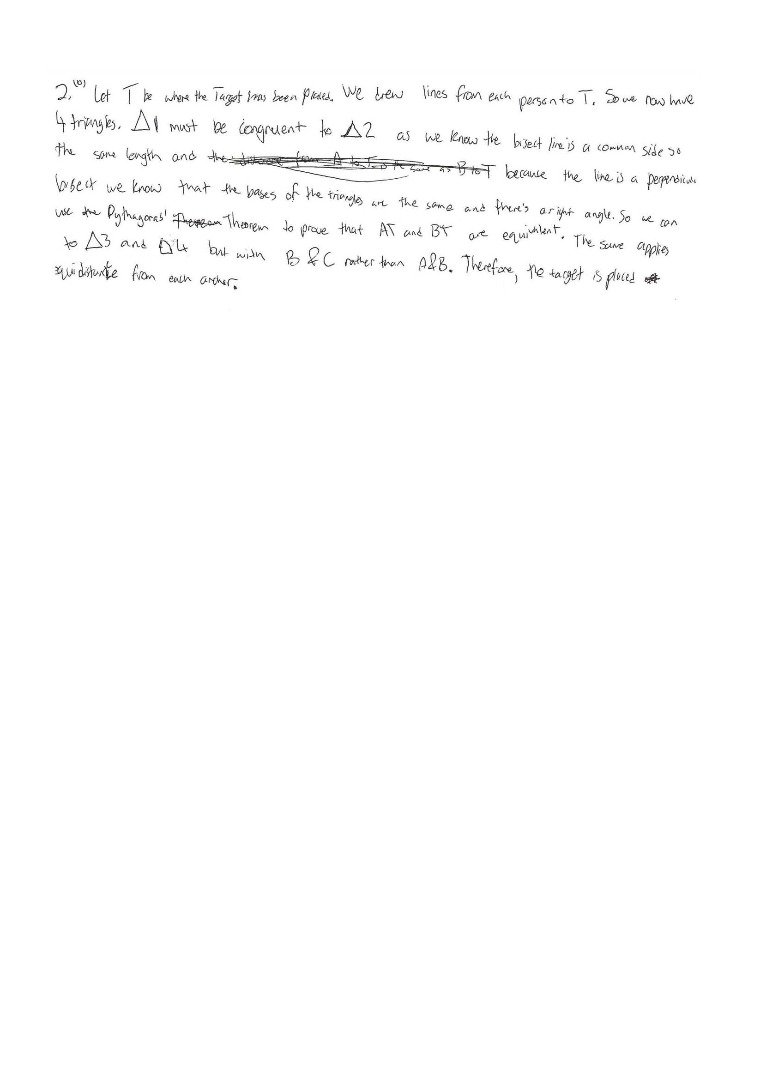 2.(b) Let T be where the Target has been placed. We drew lines from each person to T. So we now have
4 triangles. △1 must be congruent to △2 as we know the bisect line is a common side so
the same length and the distance from A to T is the same as B to T because the line is a perpendicular
bisect we know that the bases of the triangles are the same and there's a right angle. So we can
use the Pythagoras' Theorem to prove that AT and BT are equivilent. The same applies
to △3 and △4 but with B & C rather than A&B. Therefore, the target is placed
equidistance from each archer.